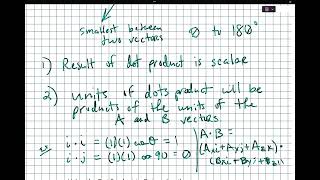 smallest between
two vectors
0 to 180°
1) Result of dot product is scalar
2) units of dots product will be
products of the units of the
A and B
vectors.
i · i = (1)(1) cos θ = 1
i · j = (1)(1) cos 90 = 0
A · B =
(Axi + Ayj + Azk) ·
(Bxi + Byj +